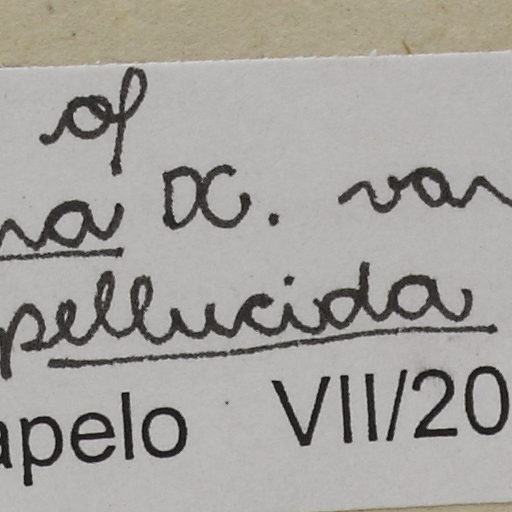 of
na DC. var
pellucida
apelo VII/20